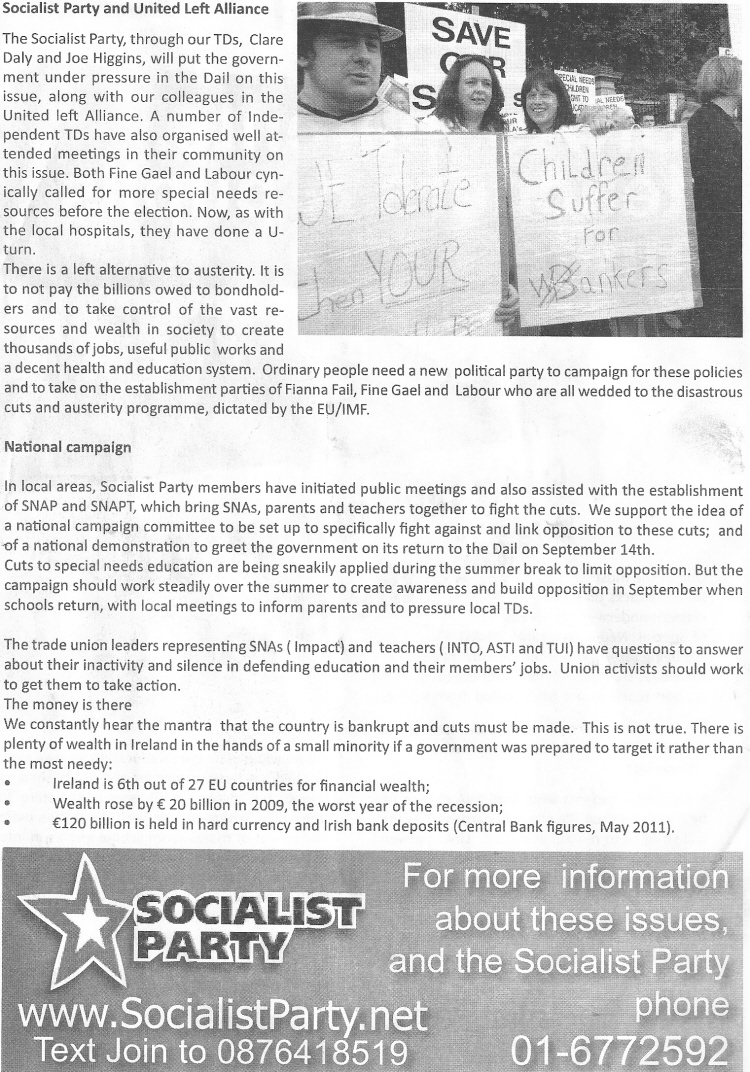 Socialist Party and United Left Alliance
The Socialist Party, through our TDs, Clare
Daly and Joe Higgins, will put the govern-
ment under pressure in the Dail on this
issue, along with our colleagues in the
United left Alliance. A number of Inde-
pendent TDs have also organised well at-
tended meetings in their community on
this issue. Both Fine Gael and Labour cyn-
ically called for more special needs re-
sources before the election. Now, as with
the local hospitals, they have done a U-
turn.
There is a left alternative to austerity. It is
to not pay the billions owed to bondhold-
ers and to take control of the vast re-
sources and wealth in society to create
thousands of jobs, useful public works and
a decent health and education system. Ordinary people need a new political party to campaign for these policies
and to take on the establishment parties of Fianna Fail, Fine Gael and Labour who are all wedded to the disastrous
cuts and austerity programme, dictated by the EU/IMF.
SAVE
OUR
SPECIAL NEEDS
CHILDREN
Tolerate
YOUR
Children
Suffer
For
WBankers
National campaign
In local areas, Socialist Party members have initiated public meetings and also assisted with the establishment
of SNAP and SNAPT, which bring SNAs, parents and teachers together to fight the cuts. We support the idea of
a national campaign committee to be set up to specifically fight against and link opposition to these cuts; and
of a national demonstration to greet the government on its return to the Dail on September 14th.
Cuts to special needs education are being sneakily applied during the summer break to limit opposition. But the
campaign should work steadily over the summer to create awareness and build opposition in September when
schools return, with local meetings to inform parents and to pressure local TDs.
The trade union leaders representing SNAs ( Impact) and teachers ( INTO, ASTI and TUI) have questions to answer
about their inactivity and silence in defending education and their members' jobs. Union activists should work
to get them to take action.
The money is there
We constantly hear the mantra that the country is bankrupt and cuts must be made. This is not true. There is
plenty of wealth in Ireland in the hands of a small minority if a government was prepared to target it rather than
the most needy:
• Ireland is 6th out of 27 EU countries for financial wealth;
• Wealth rose by € 20 billion in 2009, the worst year of the recession;
• €120 billion is held in hard currency and Irish bank deposits (Central Bank figures, May 2011).
SOCIALIST
PARTY
www.SocialistParty.net
Text Join to 0876418519
For more information
about these issues,
and the Socialist Party
phone
01-6772592